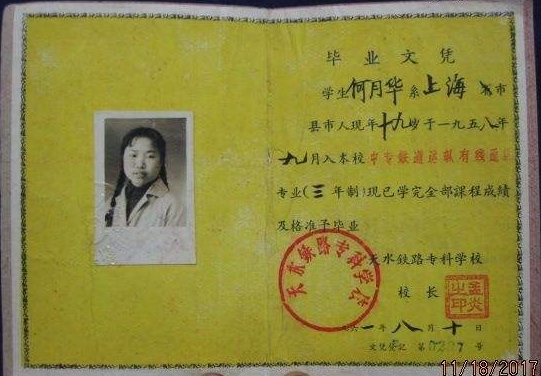 毕业文凭
学生何月华系上海省市
县市人现年十九岁于一九五八年
九月入本校中专铁道运输有线通信
专业(三年制)现已学完全部课程成绩
及格准予毕业
天水铁路专科学校
校长
孟炎之印
天水铁路专科学校
一九六一年八月十日
文凭登记 第 号
11/18/2017